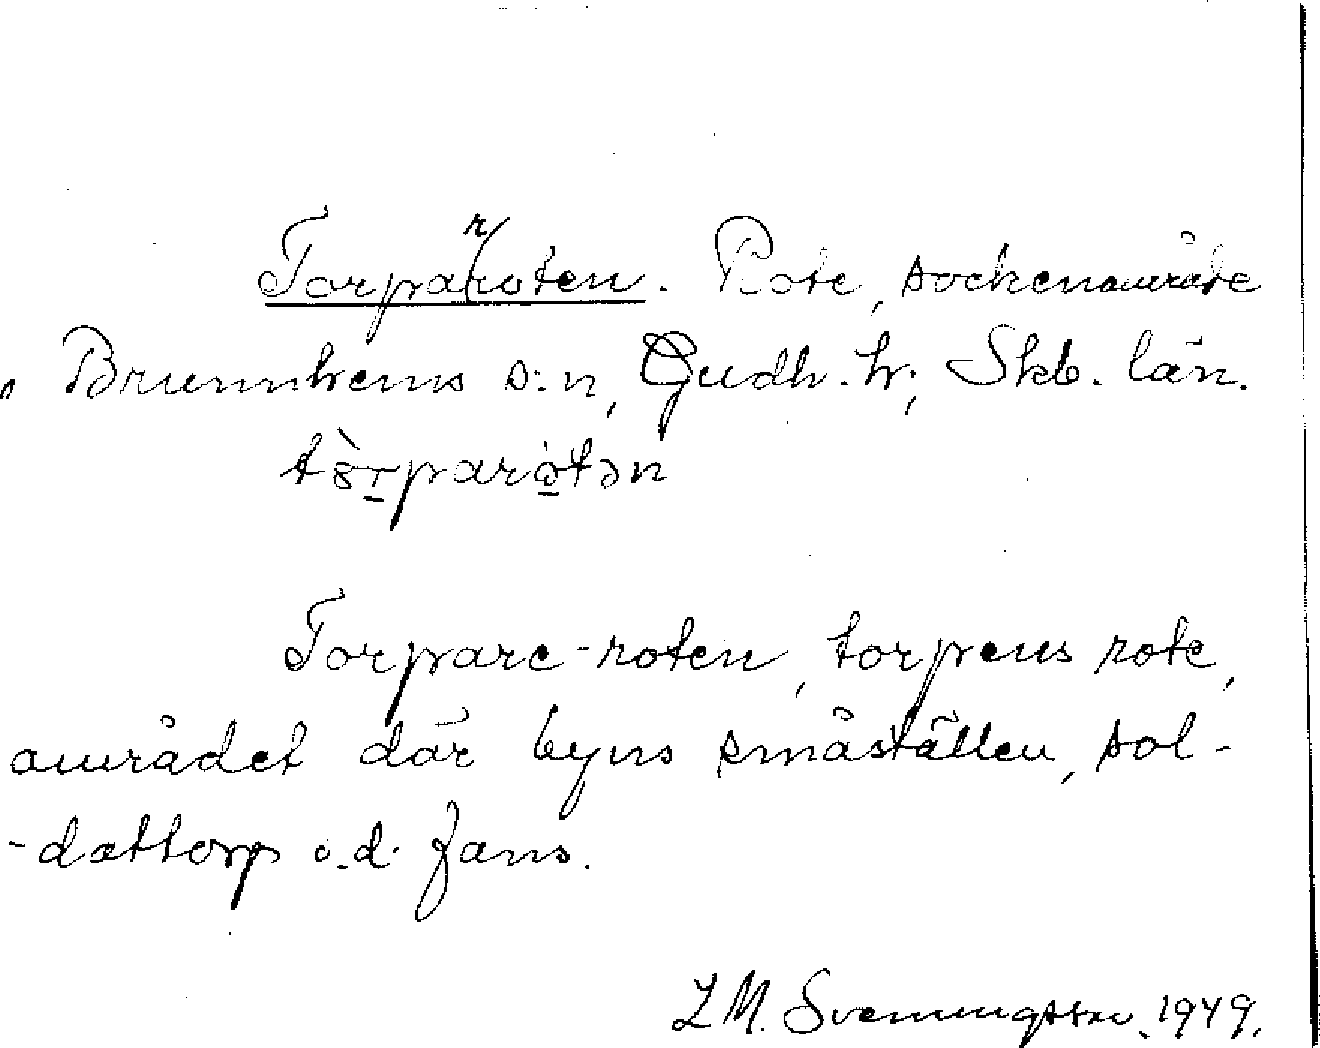 Torpar/roten. Rote, sockenområde
Brunnhems s:n, Gudh. hr, Skb. län.
Torpare-roten, torpens rote,
området där byns småställen, sol-
-dattorp o.d. fans.
Z.M. Svenningsson. 1949.